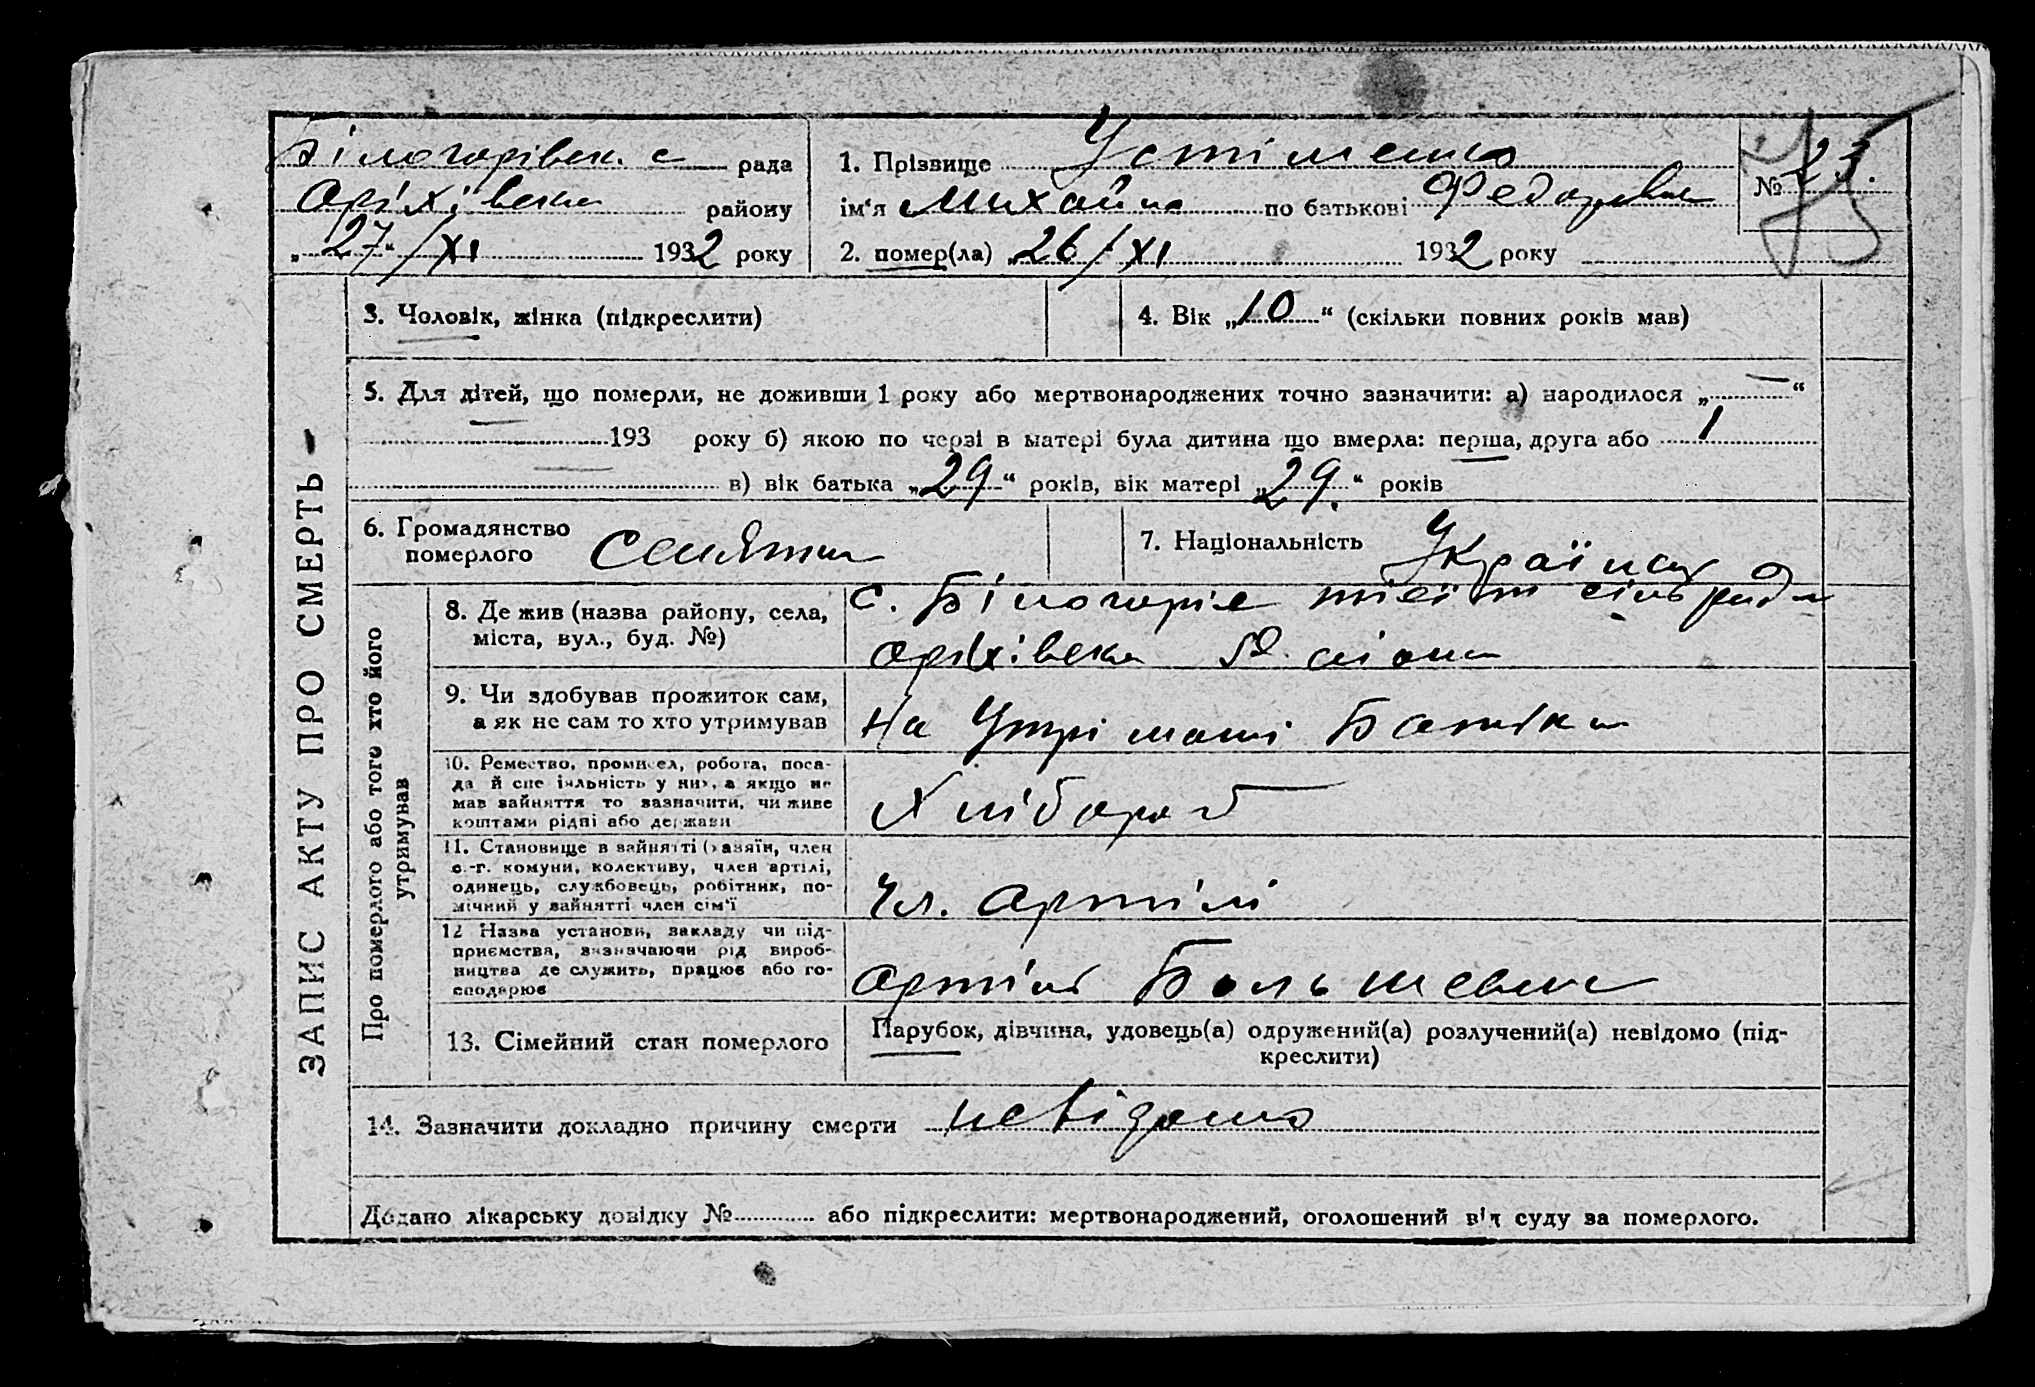 Білогорівськ. с рада
Оріхівськ району
„27“/XI 1932 року
1. Прізвище Устіменко
ім‘я Михайло по батькові Федорович
№ 23.
75
2. помер(ла) „26/XI 1932 року
ЗАПИС АКТУ ПРО СМЕРТЬ –
3. Чоловік, жінка (підкреслити)
4. Вік „10“ (скільки повних років мав)
5. Для дітей, що померли, не доживши 1 року або мертвонароджених точно зазначити: а) народилося „—“
— 193 року б) якою по черзі в матері була дитина що вмерла: перша, друга або 1
— в) вік батька „29“ років, вік матері „29.“ років
6. Громадянство
померлого
7. Національність Українец
Про померлого або того хто його
утримував
8. Де жив (назва району, села,
міста, вул., буд. №)
с. Білогоріє тієї ж сільради
Оріхівськ району
9. Чи здобував прожиток сам,
а як не сам то хто утримував
На Утріманні Батька
10. Ремество, промисел, робота, поса-
да й спеціяльність у них, а якщо не
мав зайняття то зазначити, чи живе
коштами рідні або держави
Хлібороб
11. Становище в зайнятті (хазяїн, член
с.-г. комуни, колективу, член артілі,
одинець, службовець, робітник, по-
мічний у зайнятті член сім‘ї
Чл. артілі
12 Назва установи, закладу чи під-
приємства, зазначаючи рід вироб-
ництва де служить, працює або го-
сподарює
артіль Большевик
13. Сімейний стан померлого
Парубок, дівчина, удовець(а) одружений(а) розлучений(а) невідомо (під-
креслити)
14. Зазначити докладно причину смерти невідомо
Додано лікарську довідку № або підкреслити: мертвонароджений, оголошений від суду за померлого.